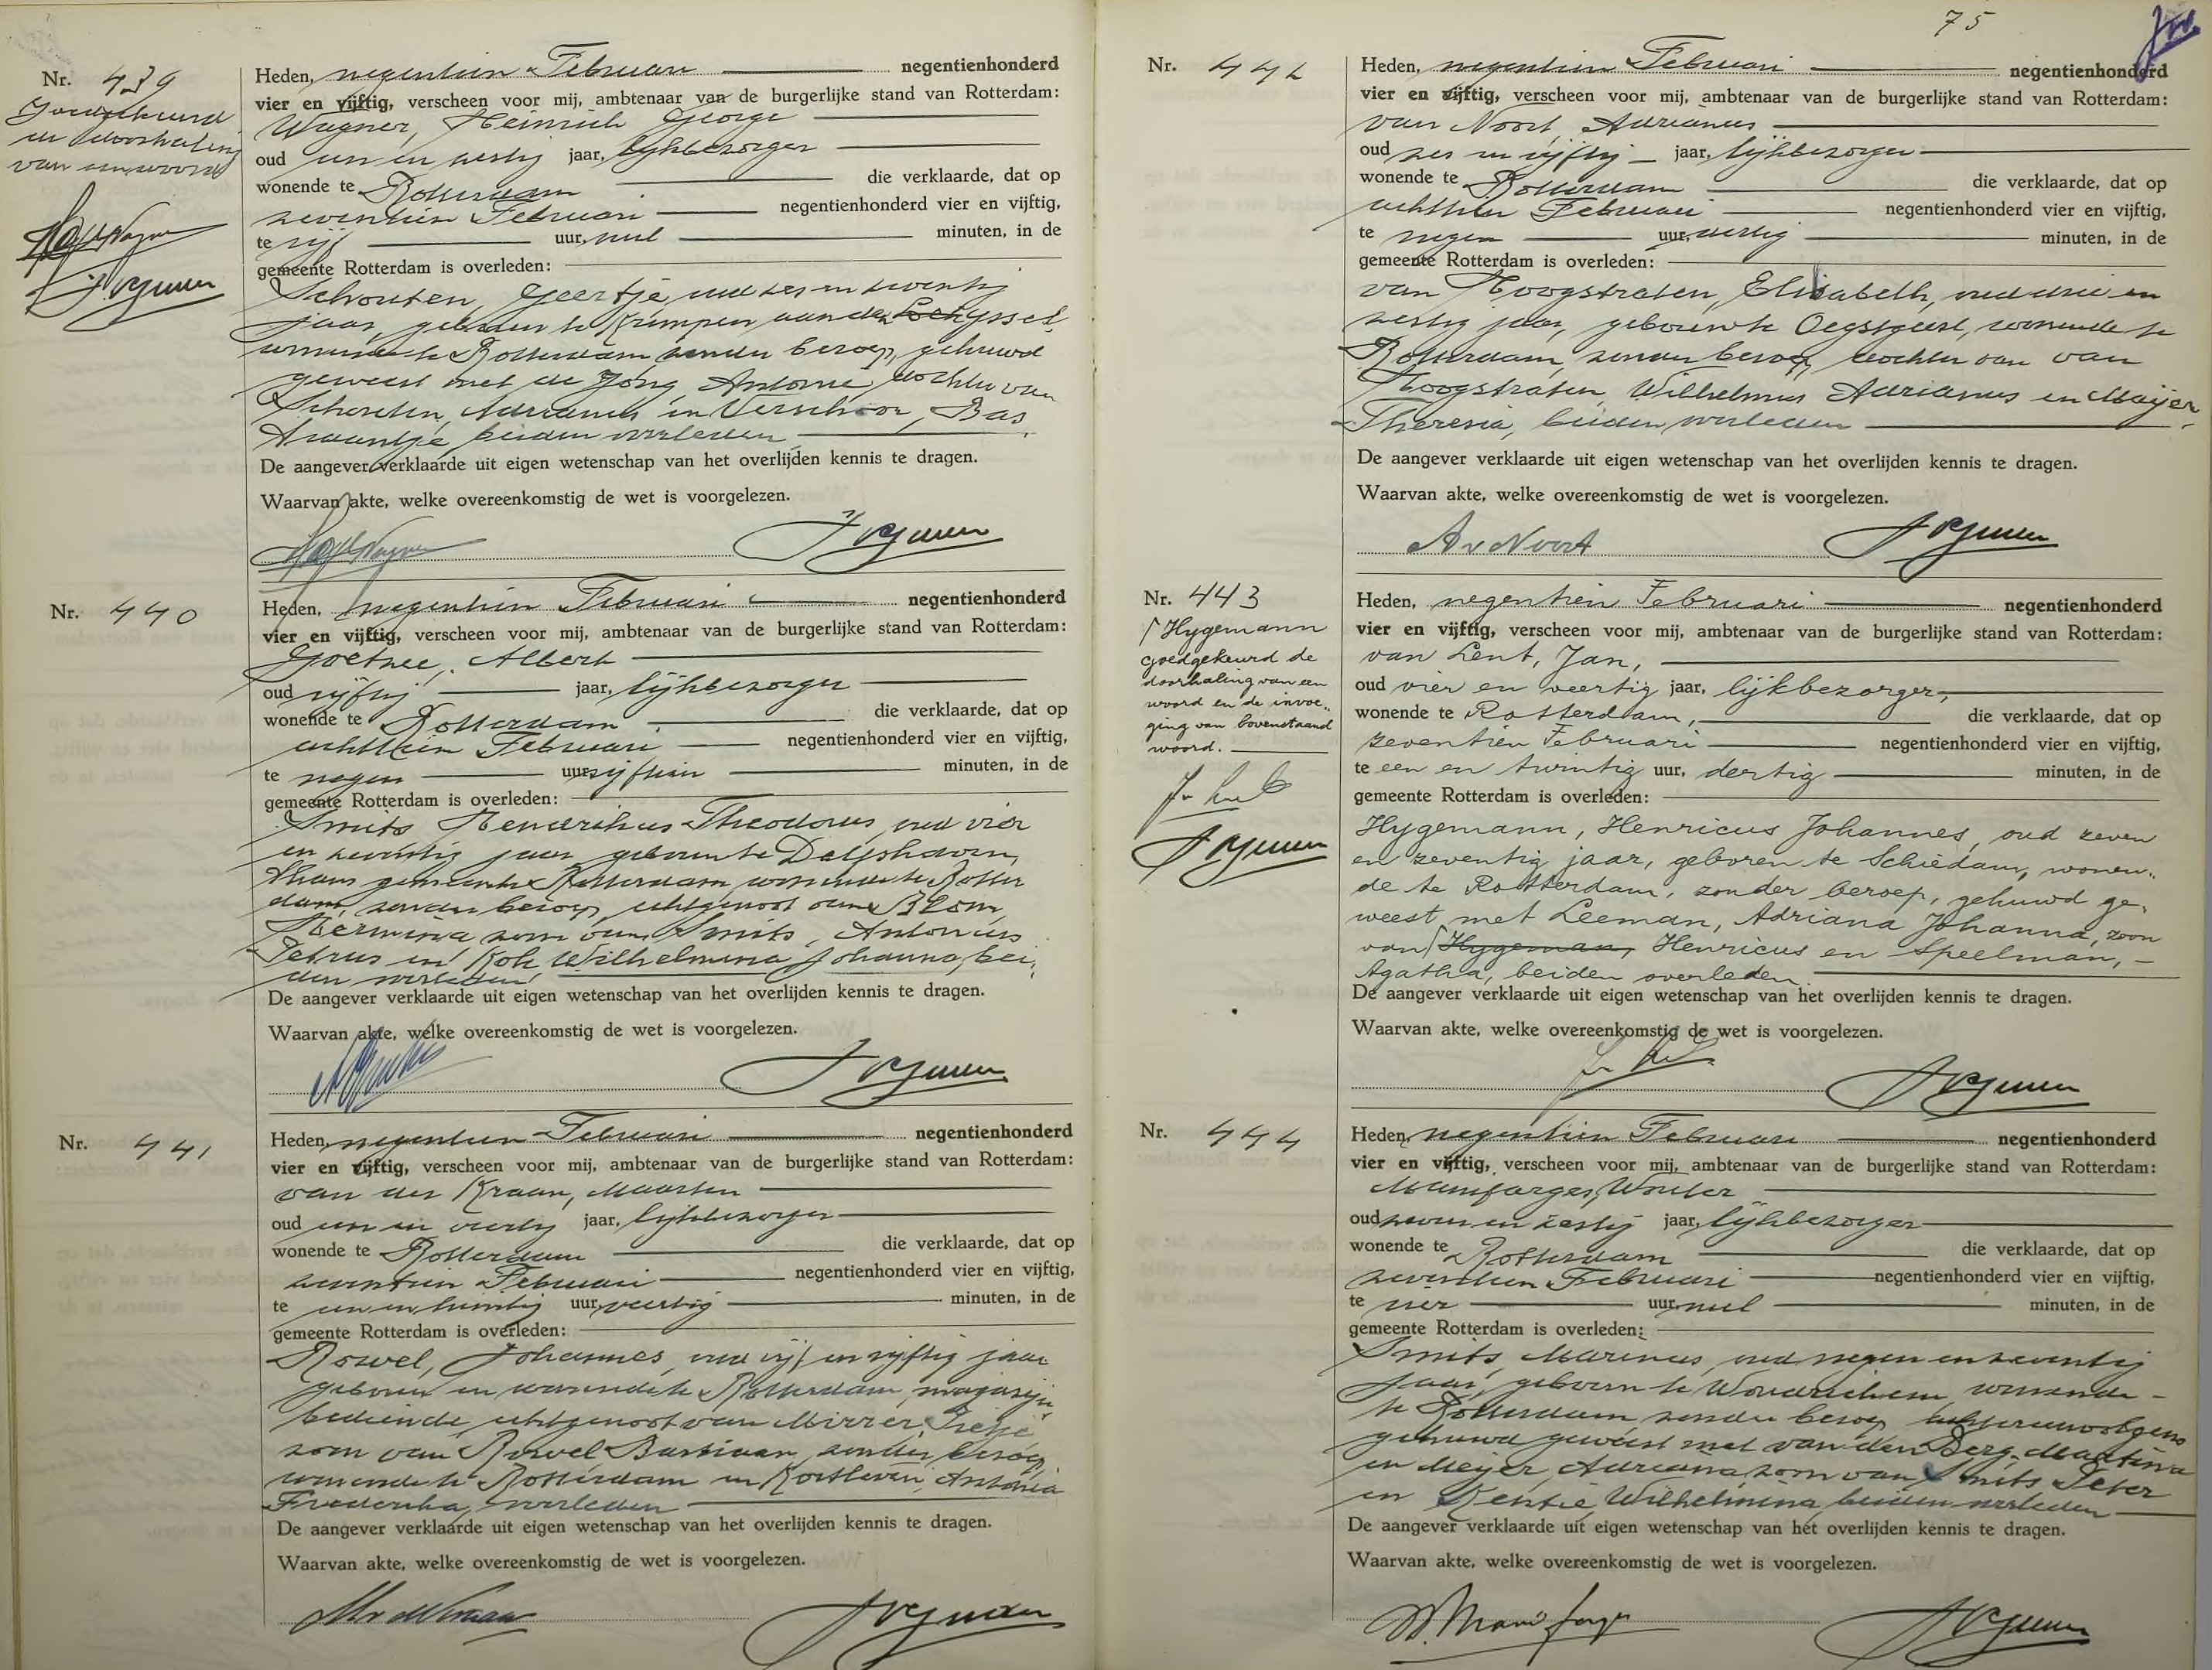 Nr. 439
Goedgekeurd
de doorhaling
van een woord
Heden, negentien Februari negentienhonderd
vier en vijftig, verscheen voor mij, ambtenaar van de burgerlijke stand van Rotterdam:
Wagner, Heinrich George
oud een en zestig jaar, lijkbezorger
wonende te Rotterdam die verklaarde, dat op
zeventien Februari negentienhonderd vier en vijftig,
te vijf uur, nul minuten, in de
gemeente Rotterdam is overleden:
Schouten, Geertje, oud zes en zeventig
jaar, geboren te Krimpen aan den IJssel,
wonende te Rotterdam, zonder beroep, gehuwd
geweest met de Jong, Antonie, dochter van
Schouten, Adrianus en Verschoor, Bas
Ariaantje, beiden overleden
De aangever verklaarde uit eigen wetenschap van het overlijden kennis te dragen.
Waarvan akte, welke overeenkomstig de wet is voorgelezen.
Nr. 440
Heden, negentien Februari negentienhonderd
vier en vijftig, verscheen voor mij, ambtenaar van de burgerlijke stand van Rotterdam:
Goetzee, Albert
oud vijftig jaar, lijkbezorger
wonende te Rotterdam die verklaarde, dat op
achttien Februari negentienhonderd vier en vijftig,
te negen uur, vijftien minuten, in de
gemeente Rotterdam is overleden:
Smits, Hendrikus Theodorus, oud vier
en zeventig jaar, geboren te Delfshaven,
thans gemeente Rotterdam, wonende te Rotter
dam, zonder beroep, echtgenoot van Blom,
Hermina, zoon van Smits, Antonius
Petrus en Kok, Wilhelmina Johanna, bei,
den overleden
De aangever verklaarde uit eigen wetenschap van het overlijden kennis te dragen.
Waarvan akte, welke overeenkomstig de wet is voorgelezen.
Nr. 441
Heden, negentien Februari negentienhonderd
vier en vijftig, verscheen voor mij, ambtenaar van de burgerlijke stand van Rotterdam:
van der Kraan, Maarten
oud een en veertig jaar, lijkbezorger
wonende te Rotterdam die verklaarde, dat op
zeventien Februari negentienhonderd vier en vijftig,
te een en twintig uur, veertig minuten, in de
gemeente Rotterdam is overleden:
Roswel, Johannes, oud vijf en vijftig jaar
geboren en wonende te Rotterdam, magazijn
bediende, echtgenoot van Mirrer, Pietje
zoon van Roswel, Bastiaan, zonder beroep,
wonende te Rotterdam en Antonia
Frederika, overleden
De aangever verklaarde uit eigen wetenschap van het overlijden kennis te dragen.
Waarvan akte, welke overeenkomstig de wet is voorgelezen.
75
Nr. 442
Heden, negentien Februari negentienhonderd
vier en vijftig, verscheen voor mij, ambtenaar van de burgerlijke stand van Rotterdam:
van Noort, Adrianus
oud zes en vijftig jaar, lijkbezorger
wonende te Rotterdam die verklaarde, dat op
achttien Februari negentienhonderd vier en vijftig,
te negen uur, dertig minuten, in de
gemeente Rotterdam is overleden:
van Hoogstraten, Elisabeth, oud drie en
zestig jaar, geboren te Oegstgeest, wonende te
Rotterdam, zonder beroep, dochter van van
Hoogstraten, Wilhelmus Adrianus en Maijer,
Theresia, beiden overleden
De aangever verklaarde uit eigen wetenschap van het overlijden kennis te dragen.
Waarvan akte, welke overeenkomstig de wet is voorgelezen.
A v Noort
Nr. 443
/ Hygemann
goedgekeurd de
doorhaling van een
woord en de invoe„
ging van bovenstaand
woord.
Heden, negentien Februari negentienhonderd
vier en vijftig, verscheen voor mij, ambtenaar van de burgerlijke stand van Rotterdam:
van Lent, Jan,
oud vier en veertig jaar, lijkbezorger,
wonende te Rotterdam, die verklaarde, dat op
zeventien Februari negentienhonderd vier en vijftig,
te een en twintig uur, dertig minuten, in de
gemeente Rotterdam is overleden:
Hygemann, Henricus Johannes, oud zeven
en zeventig jaar, geboren te Schiedam, wonen„
de te Rotterdam, zonder beroep, gehuwd ge„
weest met Leeman, Adriana Johanna, zoon
van / Hygeman, Henricus en Speelman,
Agatha, beiden overleden.
De aangever verklaarde uit eigen wetenschap van het overlijden kennis te dragen.
Waarvan akte, welke overeenkomstig de wet is voorgelezen.
Nr. 444
Heden, negentien Februari negentienhonderd
vier en vijftig, verscheen voor mij, ambtenaar van de burgerlijke stand van Rotterdam:
Mamfarges, Wouter
oud zeven en zestig jaar, lijkbezorger
wonende te Rotterdam die verklaarde, dat op
zeventien Februari negentienhonderd vier en vijftig,
te vier uur, nul minuten, in de
gemeente Rotterdam is overleden:
Smits, Marinus, oud negen en zeventig
jaar, geboren te Woudrichem, wonende
te Rotterdam, zonder beroep, achtereenvolgens
gehuwd geweest met van den Berg, Martina
en Meyer, Adriana, zoon van Smits, Peter
en Wilhelmina, beiden overleden
De aangever verklaarde uit eigen wetenschap van het overlijden kennis te dragen.
Waarvan akte, welke overeenkomstig de wet is voorgelezen.